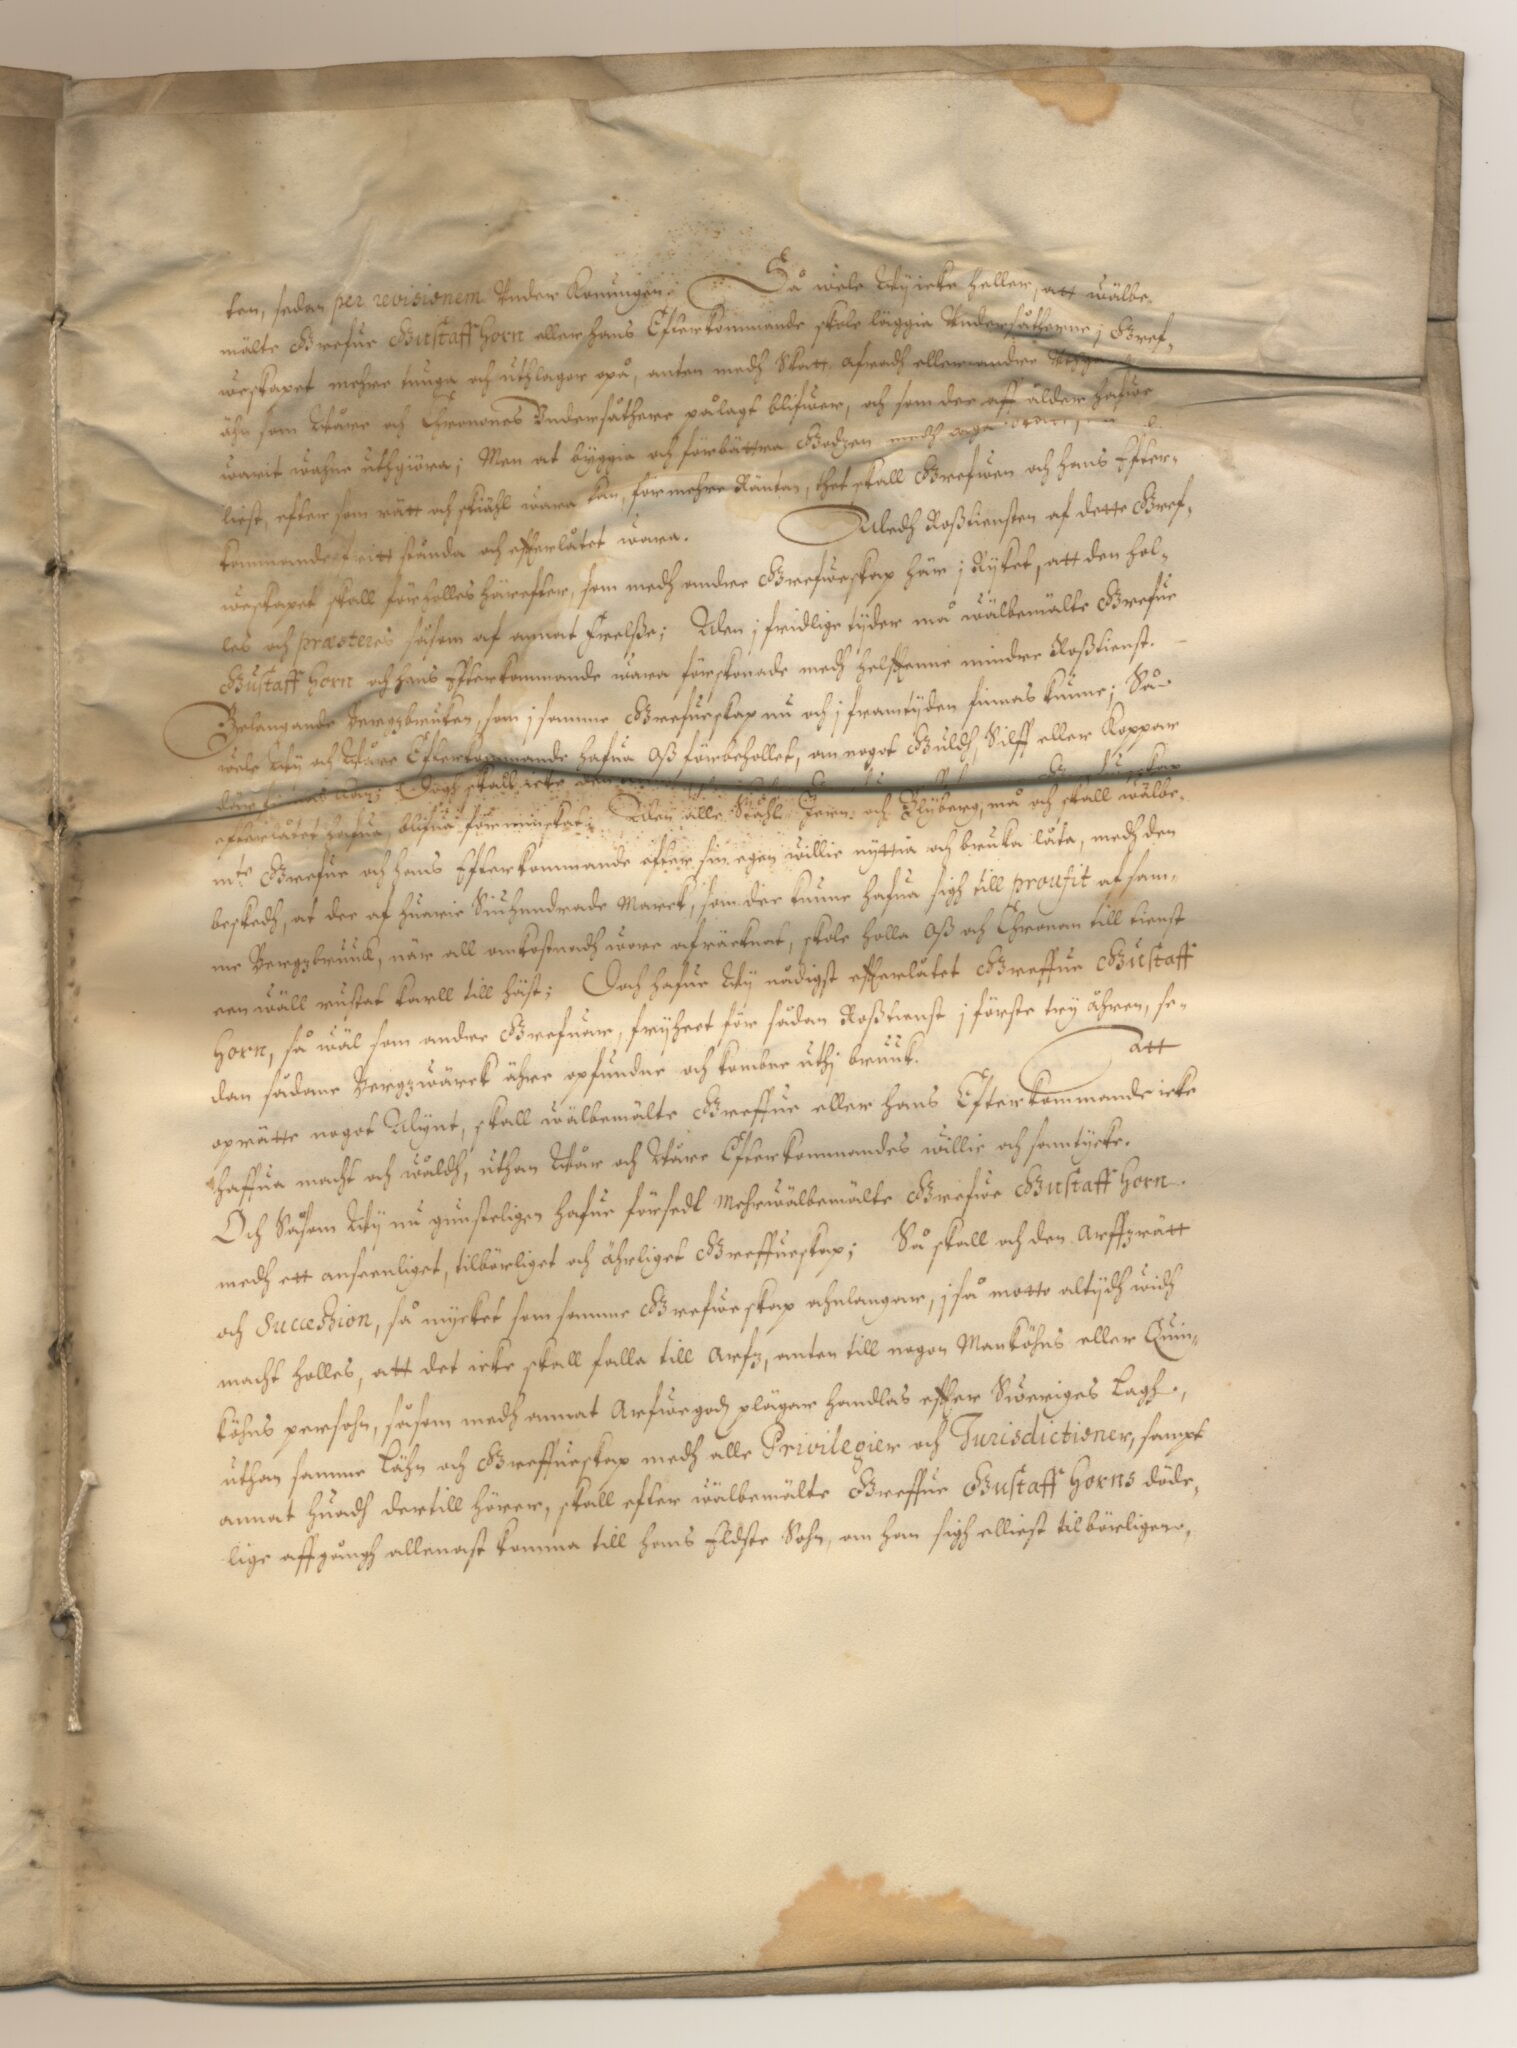 ten, sedan per revisionem Under Konungen. Så wele Wij icke heller, att wälbe-
mälte Grefue Gustaff Horn eller hans Effterkommande skole läggia Undersåtherne j Gref-
weskapet mehre tunga och uthlagor opå, anten medh Skatt, afradh eller andre
ähn som Wåre och Chronones Undersåthere pålagt blifwer, och som dee aff ålder hafwe
warit wahne uthgiöra; Men at byggia och förbättra Godzen medh
liest, efter som rätt och skiähl wara kan, för mehre Räntan, thet skall Grefwen och hans Efter-
kommande fritt stånda och effterlåtet wara. Medh Roßtiensten af dette Gref-
weskapet skall förholles härefter, som medh andre Grefweskap här j Ryket, att den hol-
les och præsteres såsom af annat Freelße; Men j fridlige tyder må wälbemälte Grefue
Gustaff Horn och hans Efterkommande wara förskonade medh helfftenne mindre Roßtienst.
Belangande Bergzbruken, som j samme Grefueskap nu och j framtyden finnas kunne; Så
wele Wij och Wåre Effterkommande hafua Oß förbehollet, om nogot Guldh, Silff eller Koppar
där finnas kan; Dogh skall icke
effterlåtet hafua, blifua förminskat; Men alle Ståhl, Jern och Blyberg, må och skall wälbe-
mte Grefue och hans Efterkommande efter sin egen willie nyttia och bruka låta, medh den
beskedh, at dee af huarie Siuhundrade Marck, som dee kunne hafua sigh till proufit af sam-
me Bergzbruuk, när all omkostnadh wore afräcknat, skole holla Oß och Chronan till tienst
een wäll rustat karll till häst; Doch hafue Wij nådigst effterlåtet Greffue Gustaff
Horn, så wäl som andre Grefuar, fryheet för sådan Roßtienst j förste try åhren, se-
dan sådane Bergzwärck ähre opfundne och kombne uthj bruuk. Att
oprätte nogot Mynt, skall wälbemälte Greffue eller hans Effterkommande icke
haffua macht och wåldh, uthan Wår och Wåre Effterkommandes willie och samtycke.
Och Såsom Wij nu gunsteligen hafue försedt Mehrwälbemälte Grefwe Gustaff Horn
medh ett anseenliget, tilbörliget och ährliget Greffueskap; Så skall och den Arffzrätt
och Succeßion, så myckit som samme Grefweskap ahnlangar, j så motto altydh widh
macht holles, att det icke skall falla till Arfz, anten till nogon Manköhns eller Quin-
köhns persohn, såsom medh annat Arfwegodz plägar handlas effter Sweriges Lagh,
uthan samme Lähn och Greffueskap medh alle Privilegier och Jurisdictioner, sampt
annat huadh dertill hörer, skall efter wälbemälte Greffue Gustaff Horns döde-
lige affgångh allenast komma till hans Eldste Sohn, om han sigh elliest tilbörligen,